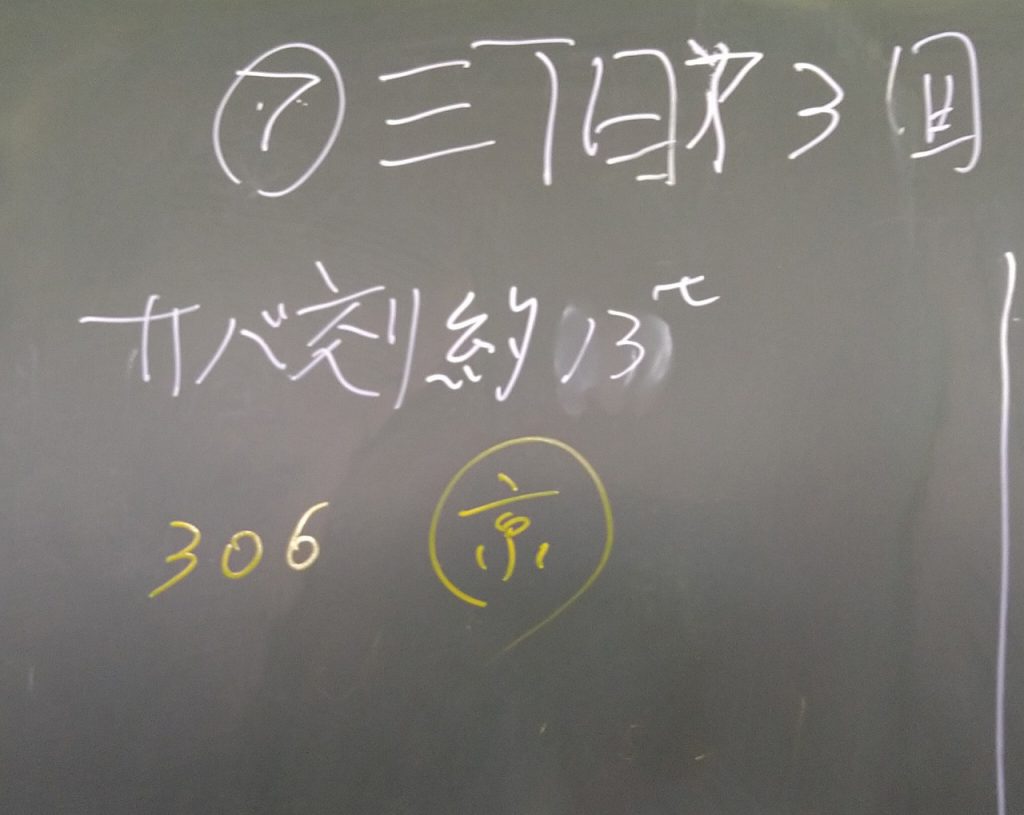 ⑦三丁目第3回
廿八刻約13t
306 京